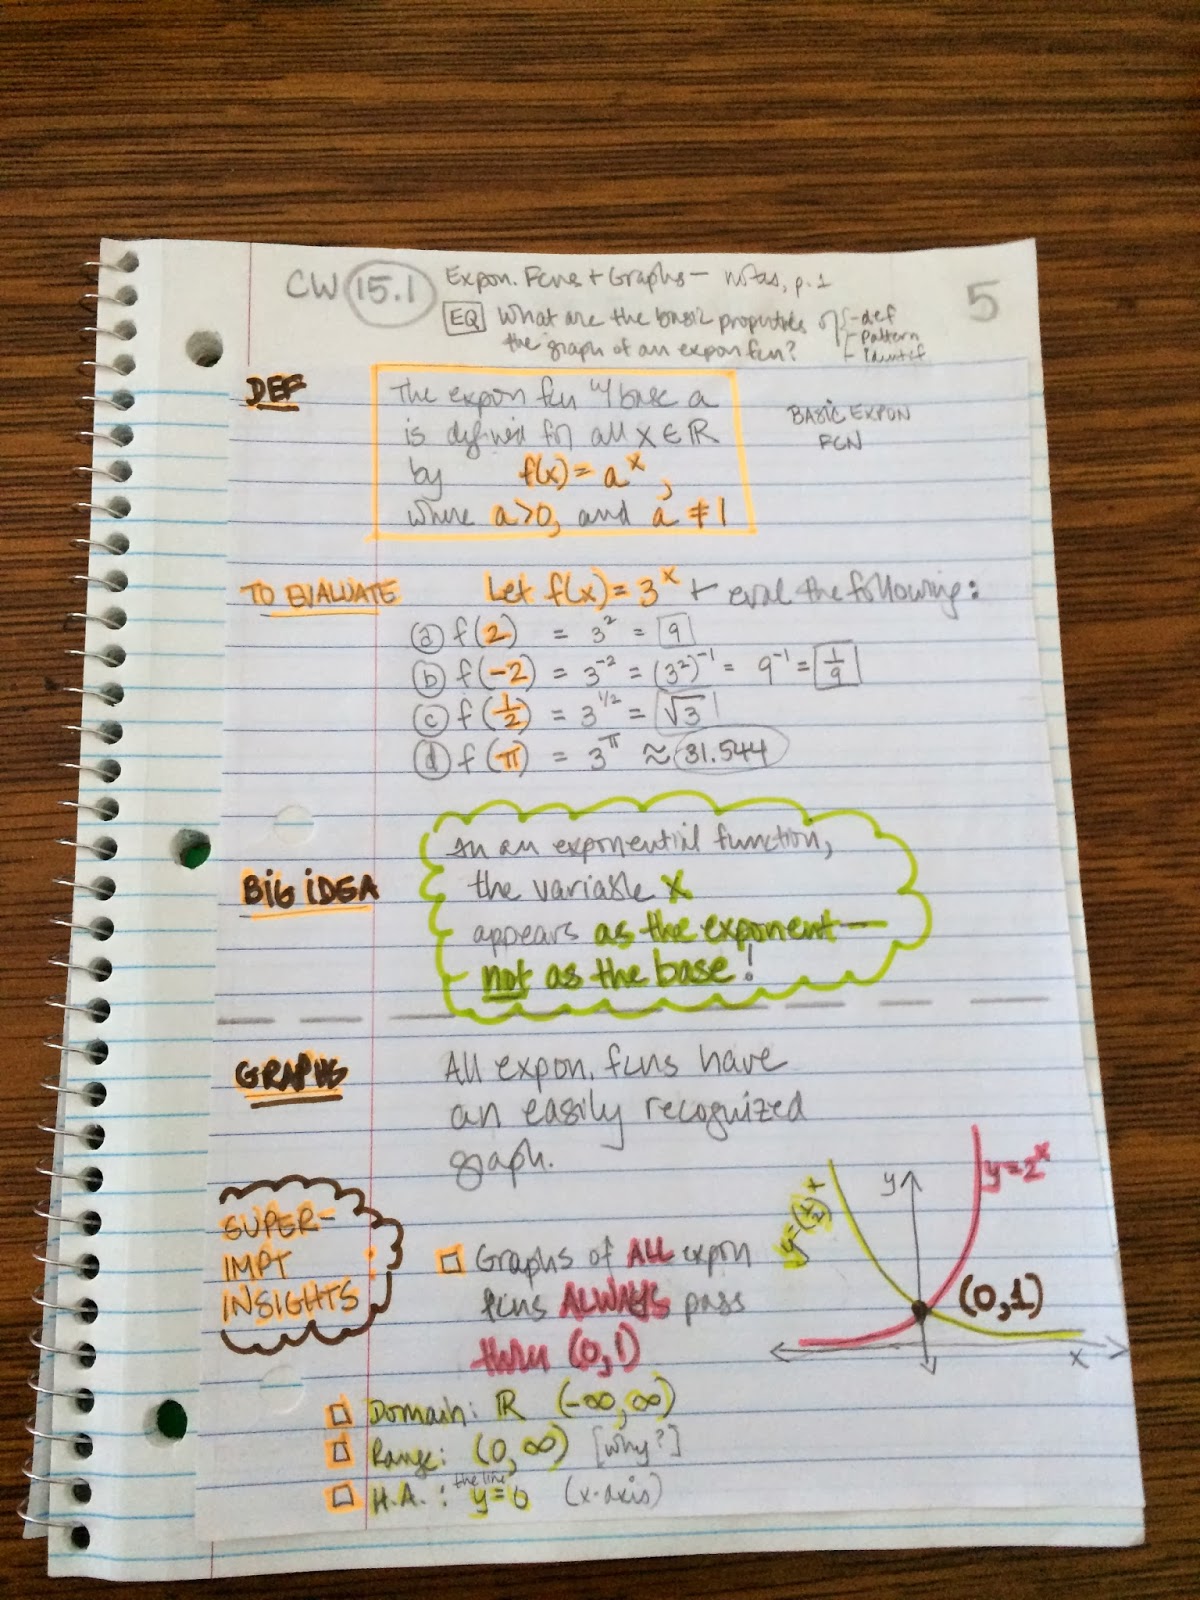 CW 15.1 Expon. Fcns + Graphs — notes, p. 1
5
EQ What are the basic properties of
the graph of an expon fcn?
- def
- pattern
- identif
DEF
The expon fcn w/ base a
is defined for all x ∈ ℝ
by f(x) = aˣ,
where a>0, and a ≠ 1
BASIC EXPON
FCN
TO EVALUATE Let f(x) = 3ˣ + eval the following:
ⓐ f(2) = 3² = 9
ⓑ f(-2) = 3⁻² = (3²)⁻¹ = 9⁻¹ = 1/9
ⓒ f(1/2) = 3^1/2 = √3
ⓓ f(π) = 3^π ≈ 31.544
BIG IDEA
In an exponential function,
the variable x
appears as the exponent —
not as the base!
GRAPHS
All expon. fcns have
an easily recognized
graph.
SUPER-
IMPT
INSIGHTS
□ Graphs of ALL expon
fcns ALWAYS pass
thru (0,1)
y=(1/2)ˣ
y
y=2ˣ
(0,1)
x
□ Domain: ℝ (-∞,∞)
□ Range: (0,∞) [why?]
□ H.A.: the line y=0 (x-axis)